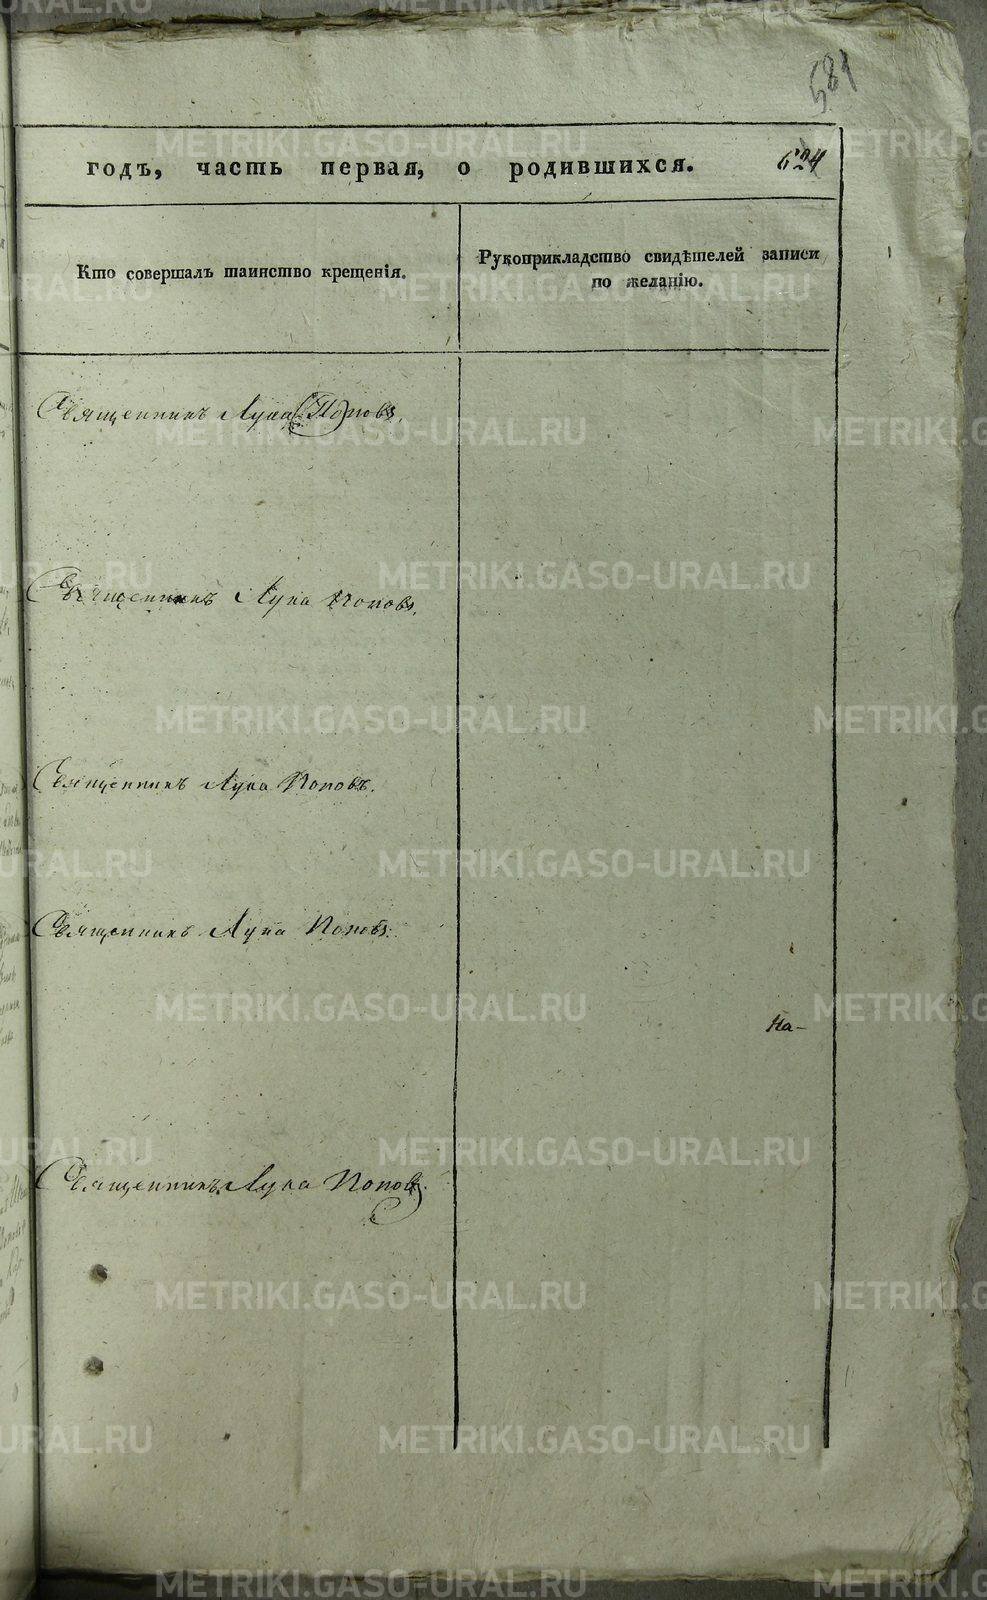 581
годъ, часть первая, о родившихся. 624
Кто совершалъ таинство крещенія.
Рукоприкладство свидѣтелей записи
по желанію.
Священникъ Лука Поповъ.
Священникъ Лука Поповъ.
Священникъ Лука Поповъ.
Священникъ Лука Поповъ.
На-
Священникъ Лука Поповъ.
METRIKI.GASO-URAL.RU